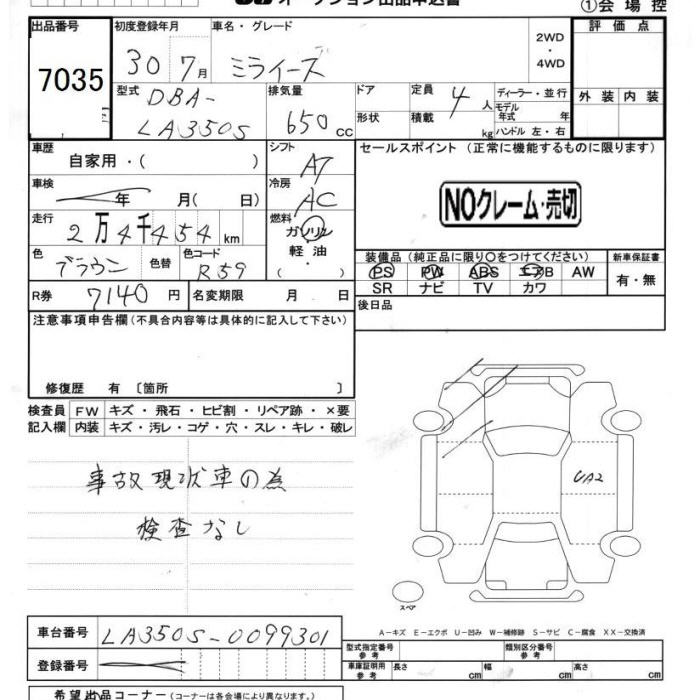 オークション出品申込書
①会場控
出品番号 7035
初度登録年月 30 7月
車名・グレード ミライース
2WD・4WD
評価点
外装 内装
型式 DBA-LA350S
排気量 650 CC
ドア
形状
定員 4人
積載 kg
ディーラー・並行
モデル年式 年
ハンドル 左・右
車歴 自家用・( )
シフト AT
セールスポイント (正常に機能するものに限ります)
NOクレーム・売切
車検 年 月( 日)
冷房 AC
走行 2万4千454km
燃料 ガソリン 軽油 ( )
色 ブラウン 色替
色コード R59
R券 7140円
名変期限 月 日
装備品 (純正品に限り○をつけてください)
PS PW ABS エアB AW
SR ナビ TV カワ
新車保証書 有・無
後日品
注意事項申告欄 (不具合内容等は具体的に記入して下さい)
修復歴 有 〔箇所 〕
検査員記入欄
FW キズ・飛石・ヒビ割・リペア跡・×要
内装 キズ・汚レ・コゲ・穴・スレ・キレ・破レ
事故現状車の為
検査なし
UA2
スペア
A-キズ E-エクボ U-凹み W-補修跡 S-サビ C-腐食 XX-交換済
車台番号 LA350S-0099301
登録番号
型式指定番号 参考
類別区分番号 参考
車庫証明用 参考 長さ cm 幅 cm 高さ cm
希望出品コーナー (コーナーは各会場により異なります。)